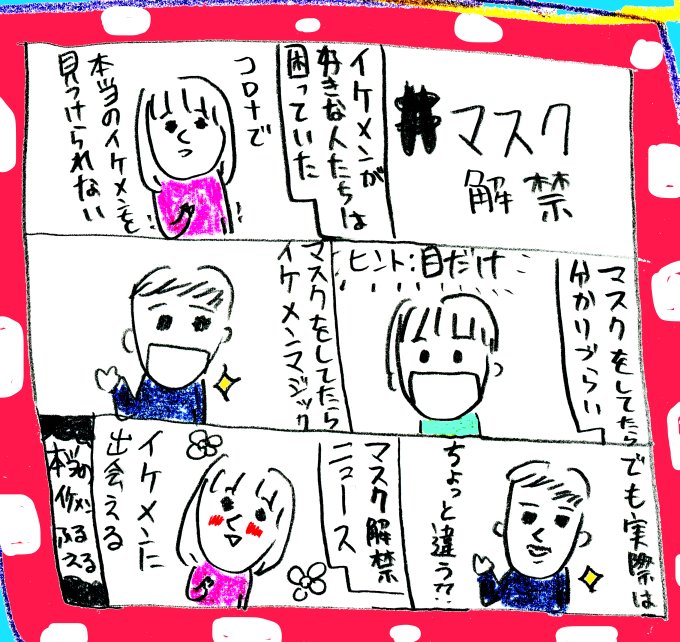 マスク
解禁
イケメンが
好きな人たちは
困っていた
コロナで
本当のイケメンを
見つけられない
マスクをしてたら
分かりづらい
ヒント:目だけ
マスクをしてたら
イケメンマジック
でも実際は
ちょっと違う??
マスク解禁
ニュース
イケメンに
出会える
本当の
イケメン
ふるえる